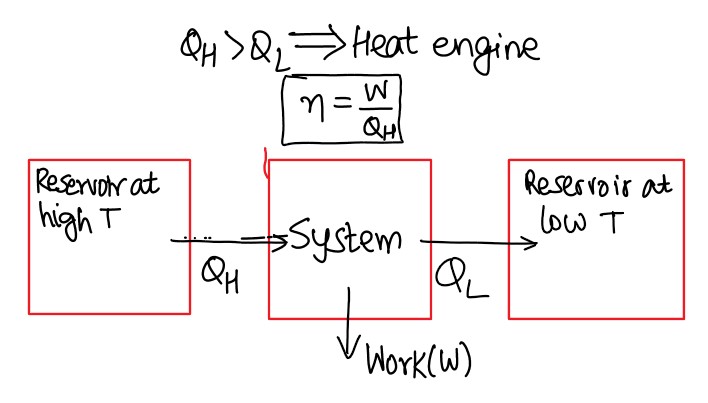 Q_H > Q_L ⟹ Heat engine
η = W/Q_H
Reservoir at
high T
System
Reservoir at
low T
Q_H
Q_L
Work(W)